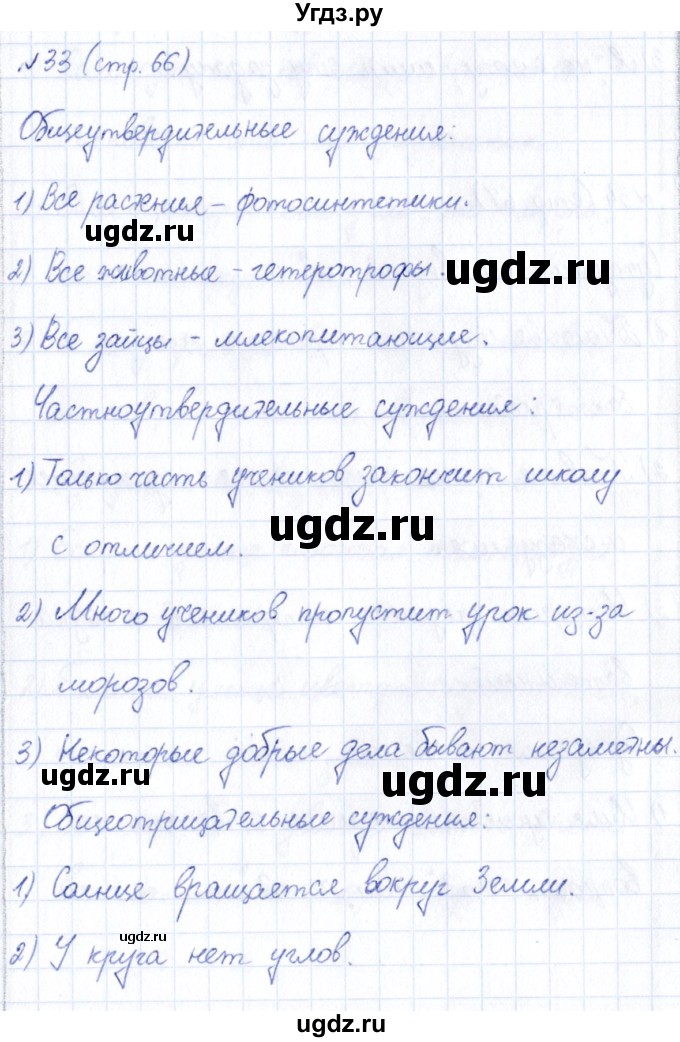 Угдз.ру
№33 (стр. 66)
Общеутвердительные суждения:
1) Все растения – фотосинтетики.
ugdz.ru
ugdz.ru
2) Все животные – гетеротрофы.
3) Все зайцы – млекопитающие.
Частноутвердительные суждения:
1) Только часть учеников закончит школу
ugdz.ru
с отличием.
2) Много учеников пропустит урок из-за
морозов.
3) Некоторые добрые дела бывают незаметны.
ugdz.ru
ugdz.ru
Общеотрицательные суждения:
1) Солнце вращается вокруг Земли.
ugdz.ru
2) У круга нет углов.
ugdz.ru